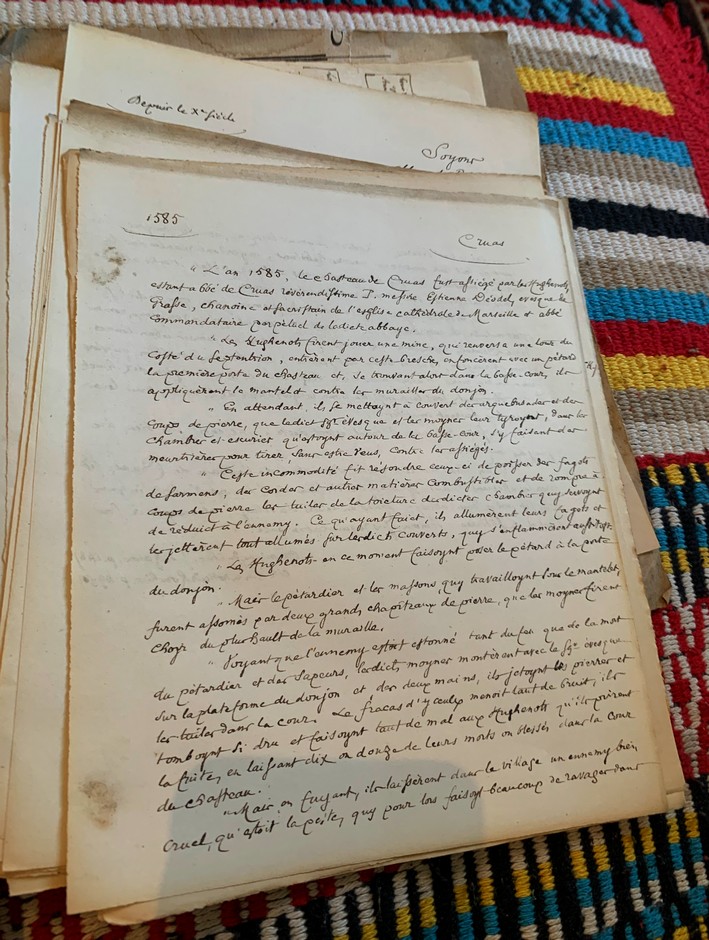 Depuis le Xe siècle
Soyons
1585
Cruas
" L'an 1585, le chasteau de Cruas fust assiégé par les Hughenots,
estant abbé de Cruas révérendissime P. messire Estienne Déodel, evesque de
Grasse, chanoine et sacristain de l'esglise cathédrale de Marseille et abbé
Commandataire perpétuel de ladicte abbaye.
" Les Hughenots firent jouer une mine, qui renversa une tour du
Costé du Septentrion, entrèrent par ceste bresche, enfoncèrent avec un pétard
la première porte du chasteau et, se trouvant alors dans la basse-cour, ils
appliquèrent le mantelet contre les murailles du donjon.
" En attendant, ils se mettoynt à couvert des arquebusades et des
Coups de pierre, que ledict Sgr évesque et les moynes leur tyroyent, dans les
chambres et escuries qu'estoynt autour de la basse-cour, s'y faisant des
meurtrières pour tirer, sans estre veus, contre les assiégés.
" Ceste incommodité fit résoudre ceux-ci de poisser des fagots
de sarmens, des cordes et autres matières combustibles et de rompre à
coups de pierre les tuiles de la toicture desdictes chambres quy servoynt
de réduict à l'ennemy. Ce qu'ayant faict, ils allumèrent leurs fagots et
les jettèrent tout allumés sur lesdicts couverts, quy s'enflammèrent
" Les Hughenots en ce moment faisoynt poser le pétard à la porte
du donjon.
" Mais le pétardier et les massons quy travailloynt sous le mantelet,
furent assomés par deux grands chapiteaux de pierre, que les moynes firent
choyr du plus hault de la muraille.
" Voyant que l'ennemy estoit estonné tant du feu que de la mort
du pétardier et des sapeurs, lesdicts moynes montèrent avec le Sgr évesque
sur la plateforme du donjon et des deux mains, ils jetoynt les pierres et
les tuiles dans la cour. Le fracas d'yceulx menoit tant de bruit, ils
tomboynt si dru et faisoynt tant de mal aux Hughenots qu'ils prirent
la fuite, en laissant dix ou douze de leurs morts ou blessés dans la cour
du chasteau.
" Mais en fuyant, ils laissèrent dans le village un ennemy bien
cruel, qu'estoit la peste, quy pour lors faisoyt beaucoup de ravages dans